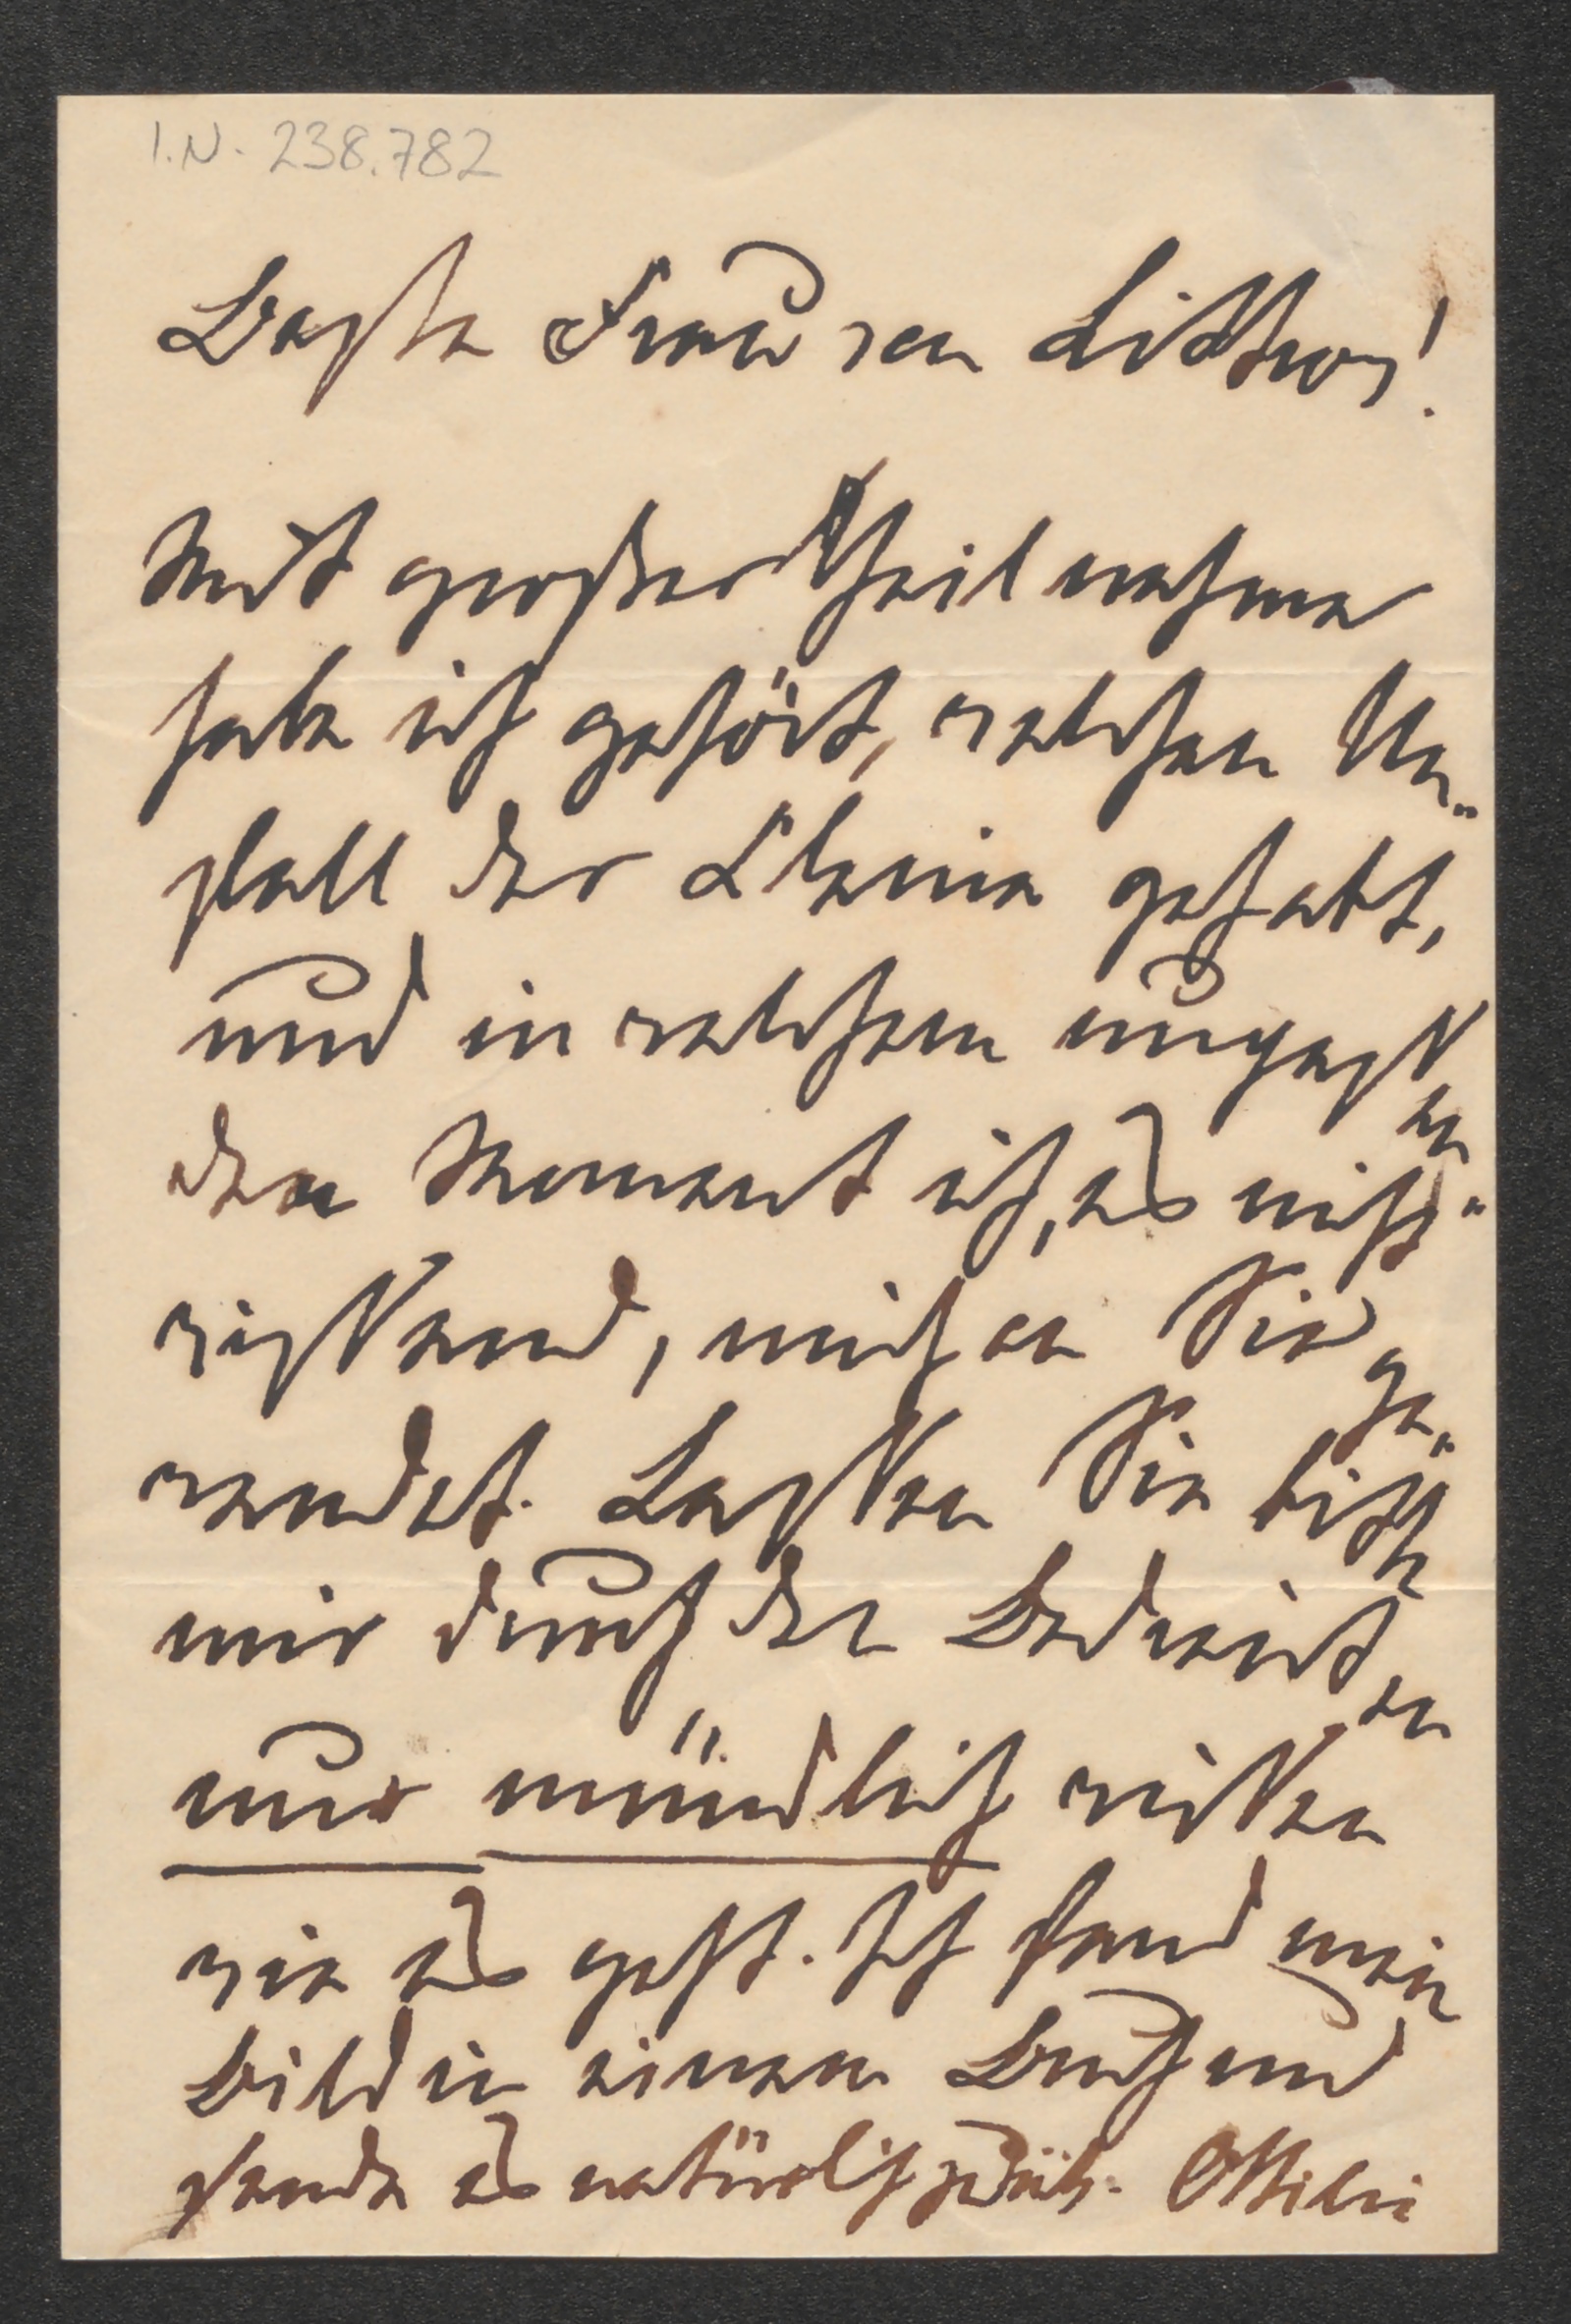 I.N. 238.782
Beste Frau von Littrow!
Mit großer Theilnahme
habe ich gehört, welchen Un-
fall der Kleine gehabt,
und in welchem
den Moment ich, es nicht
wissend, mich an Sie ge-
wendet. Lassen Sie bitte
mir durch den Bedienten
nur mündlich wissen
wie es geht. Ich fand mein
Bild in einem Buch und
sende es natürlich zurück. Ottilie